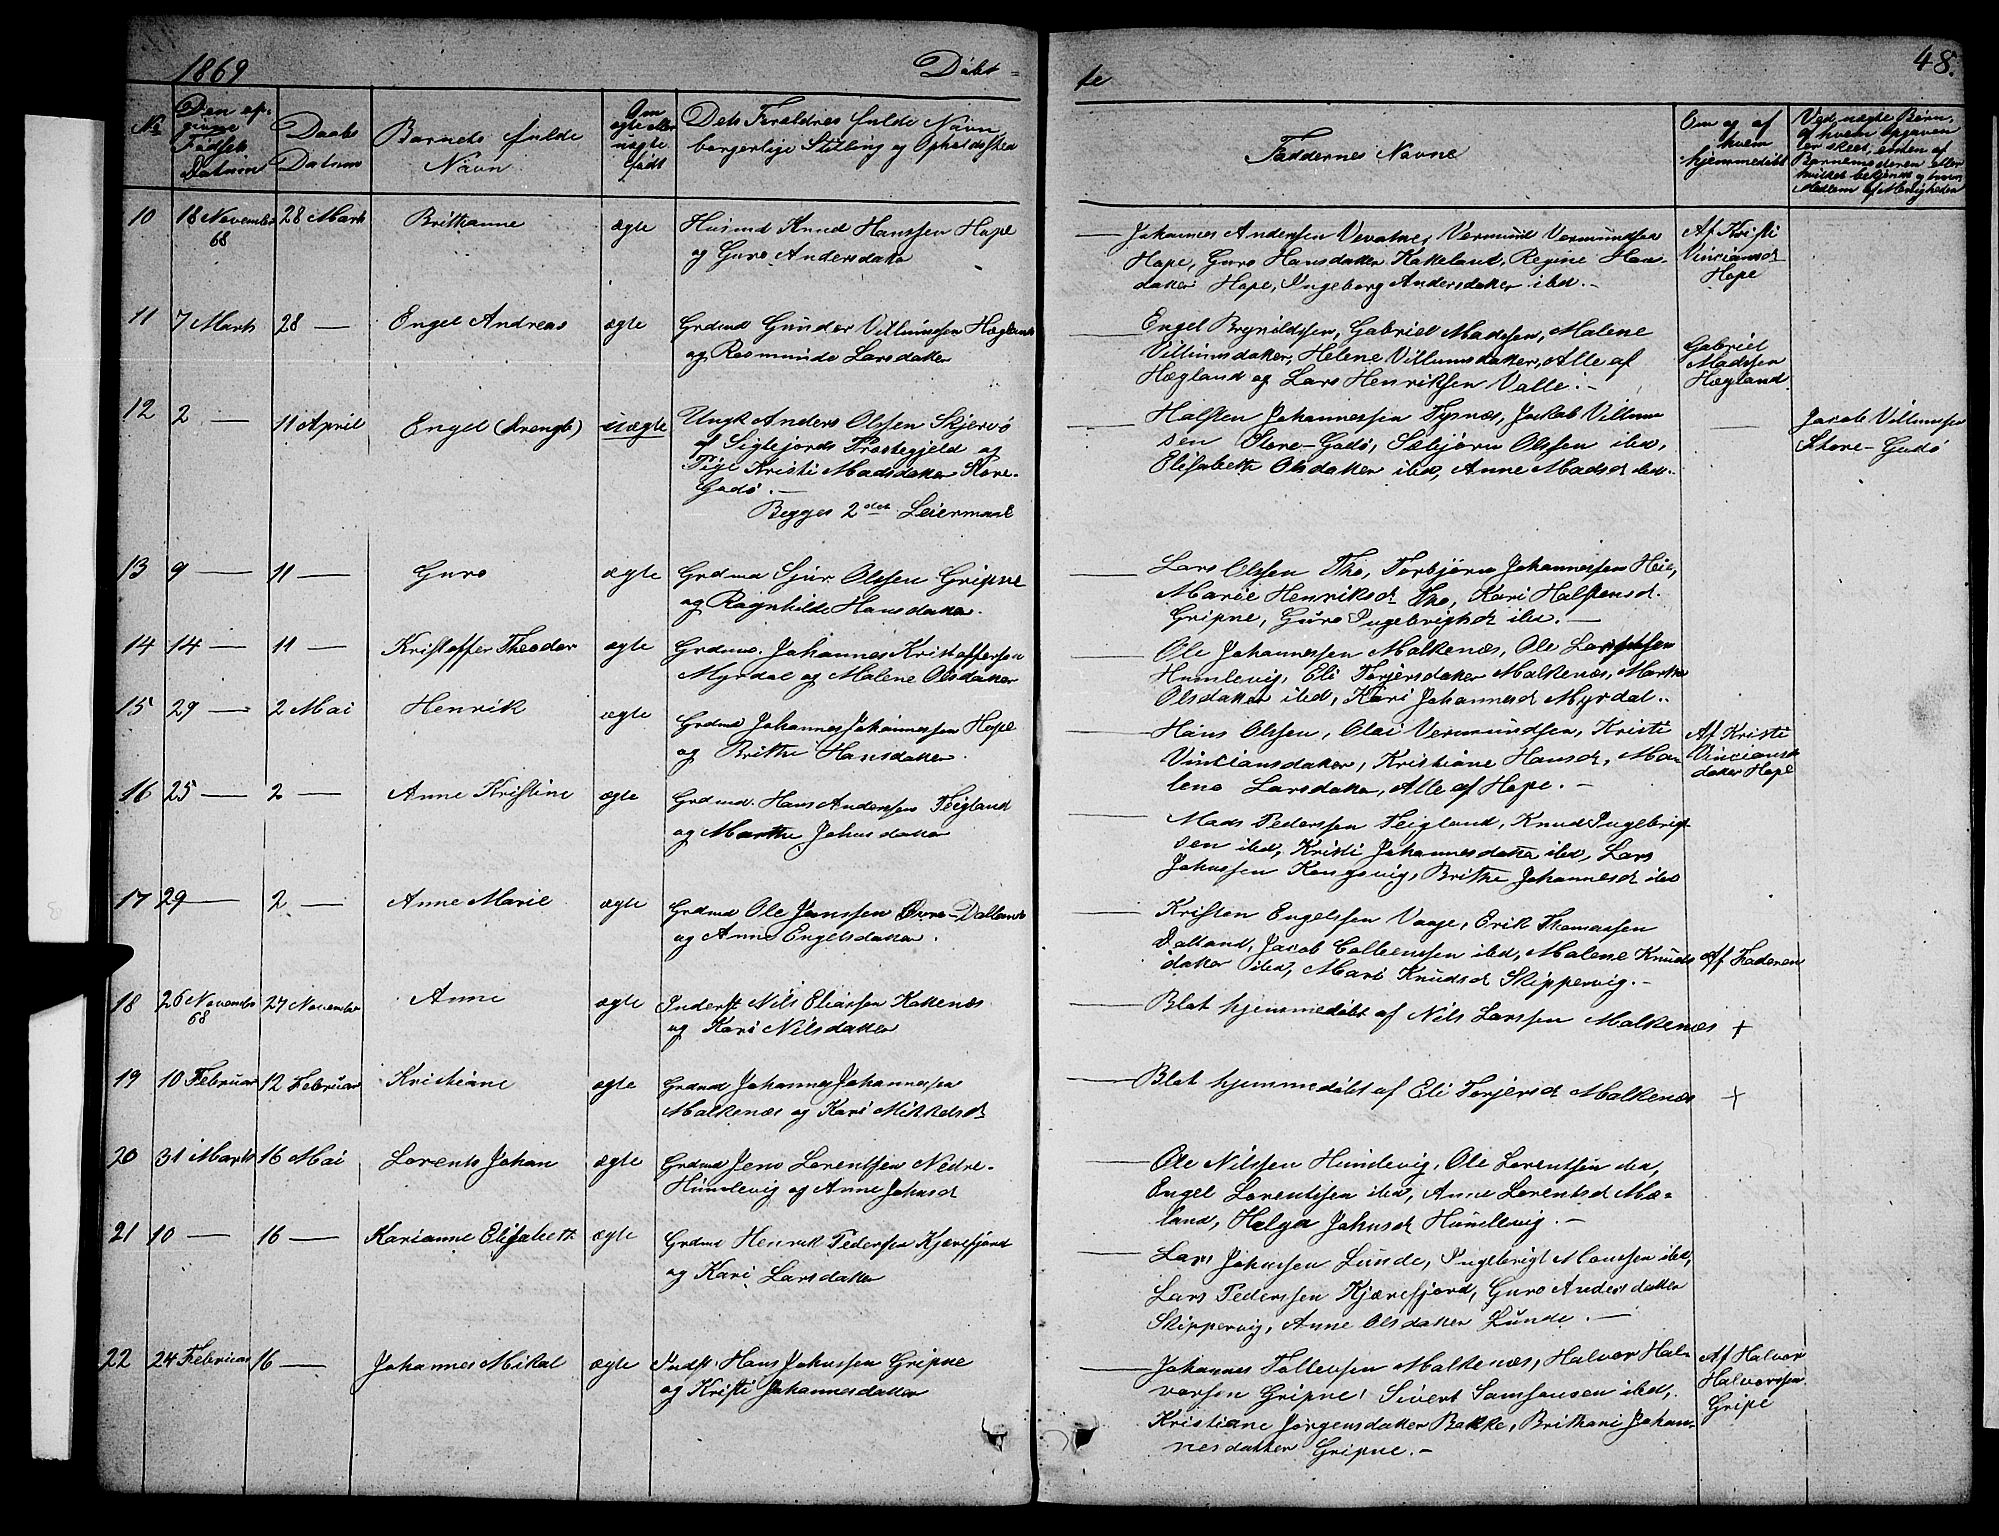 1869
Døbt-
te
48.
No
Den op-
givne
Fødsels
Datum
Daabs
Datum
Barnets fulde
Navn
Om
ægte eller
uægte
født
Dets Forældres fulde Navn,
borgerlige Stilling og Opholdssted
Faddernes Navne
Om og af
hvem
hjemmedøbt
Ved uægte Børn,
af hvem Opgaven
er skeet, enten af
Barnemoderen eller
hvilket bekjendt og
Medlem af Menigheden
10
18 November
68
28 Marts
Brithanne
ægte
Husmd Knud Hanssen Hope
og Guro Andersdatter
Johannes Anderssen Vevatne, Vermund Vermundsen
Hope, Guro Hansdatter Kakeland, Regine Han-
datter Hope, Ingeborg Andersdatter ibd.-
Af Kristi
Vinciansd
Hope
11
7 Marts
28 —
Engel Andreas
ægte
Grdmd Gunder Villumsen Hægland
og Rasmunde Larsdatter
Engel Brynildssen, Gabriel Madssen, Malene
Villumsdatter, Helene Villumsdatter, Alle af
Hægland og Lars Henriksen Valle.-
Gabriel
Madssen
Hægland
12
2 —
11 April
Engel (Drengb)
uægte
Ungk Anders Olssen Skjervø
af Sigtefjords Præstegjeld og
Pige Kristi Madsdatter Store-
Godø.-
Begges 2det Leiermaal
Halsten Johannessen Tysnæs, Jakob Villum
sen Store-Godø, Sæbjørn Olssen ibd,
Elisabeth Olsdatter ibd, Anne Madsd ibd.
Jacob Villumsen
Store-Godø
13
9 —
11 —
Guro
ægte
Grdmd Sjur Olssen Gripne
og Ragnhilde Hansdatter.
Lars Olssen Tho, Torbjørn Johannessen Heie,
Marie Henriksd Tho, Kari Halstensd.
Gripne, Guro Ingebrigtsd ibd.—
14
14 —
11 —
Kristoffer Theodor
ægte
Grdmd. Johannes Kristoffersen
Myrdal og Malene Olsdatter
Ole Johannessen Malkenæs, Ole
Humlevig, Eli Torjersdatter Malkenæs, Martha
Olsdatter ibd, Kari Johannesd Myrdal..
15
29 —
2 Mai
Henrik
ægte
Grdmd Johannes Johannessen Hope
og Brithe Hansdatter.
Hans Olssen, Olai Vermundsen, Kristi
Vinciansdatter, Kristiane Hansd, Ma-
lene Larsdatter, Alle af Hope.-
Af Kristi
Vincians
datter Hope
16
25 —
2 —
Anne Kristine
ægte
Grdmd. Hans Anderssen Teigland
og Marthe Johnsdatter
Mads Pederssen Teigland, Knud Ingebrigt
sen ibd, Kristi Johannesdatter ibd, Lars
Johnssen Kongsvig, Brithe Johannesd ibd
17
29 —
2 —
Anne Marie
ægte
Grdmd Ole Janssen Øvre-Dalland
og Anne Engelsdatter.
Kristen Engelssen Vaage, Erik Thomassen
Dalland, Jacob Colbenssen ibd, Malene Knuds
datter ibd, Mari Knudsd Skippervig.-
Af Faderen
18
26 November
68
27 November
Anne
ægte
Inderst Nils Eliassen Kakenæs
og Kari Nilsdatter
Blot hjemmedøbt af Nils Larssen Malkenæs
+
19
10 Februar
12 Februar
Kristiane
ægte
Grdmd Johannes Johannessen
Malkenæs og Kari Mikkelsd
Blot hjemmedøbt af Eli Torjersd Malkenæs
+
20
31 Marts
16 Mai
Lorents Johan
ægte
Grdmd Jens Lorentsen Nedre-
Humlevig og Anne Johnsd
Ole Nilssen Humlevig, Ole Lorentsen ibd,
Engel Lorentssen ibd, Anne Lorentsd Mæ-
land, Helga Johnsd Humlevig.-
21
10 —
16 —
Karianne Elisabeth
ægte
Grdmd Henrik Pederssen Kjærefjord
og Kari Larsdatter
Lars Johnssen Lunde, Ingebrigt Monssen ibd,
Lars Pederssen Kjærefjord, Guro Andersdatter
Skippervig, Anne Olsdatter Lunde.—
22
24 Februar
16 —
Johannes Mikal
ægte
Indst. Hans Johnssen Gripne
og Kristi Johannesdatter
Johannes Tollevsen Malkenæs, Halvor Hal-
vorsen Gripne, Sivert Samsonsen ibd,
Kristiane Jørgensdatter Bakke, Brithani Johan-
nesdatter Gripne.-
Af Halvor
Halvorssen
Gripe